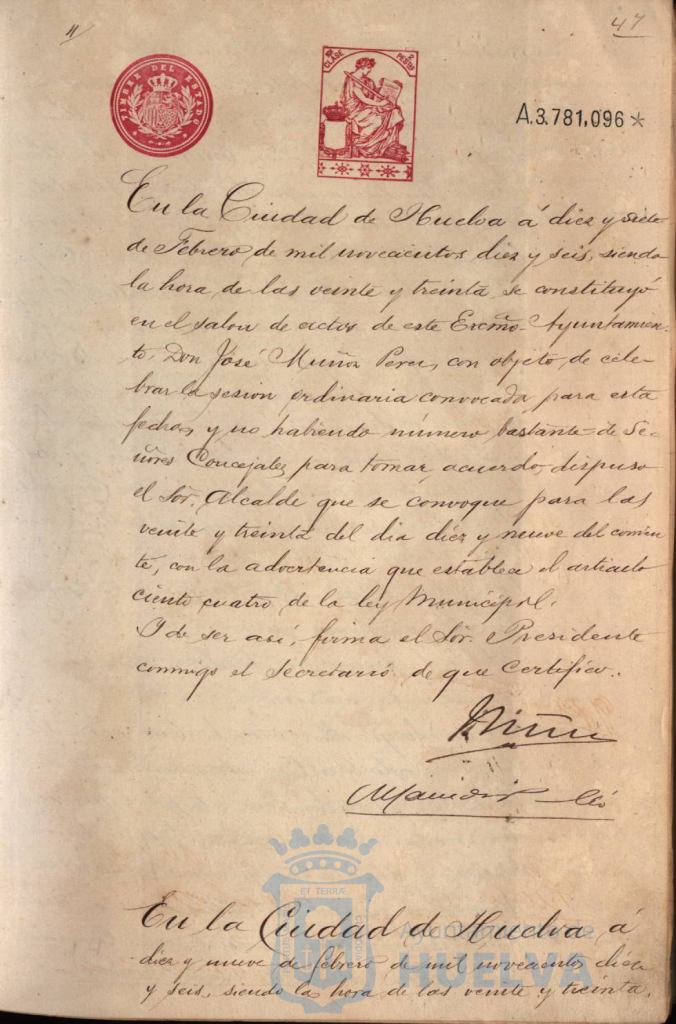 47
TIMBRE DEL ESTADO
CLASE
PESETAS
A.3.781,096*
En la Ciudad de Huelva á diez y siete
de Febrero de mil novecientos diez y seis, siendo
la hora de las veinte y treinta, se constituyó
en el salon de actos de este Excmo. Ayuntamien-
to, Don José Muñoz Perez, con objeto de cele-
brar la sesion ordinaria convocada para esta
fecha, y no habiendo número bastante de Se-
ñores Concejales para tomar acuerdo, dispuso
el Sor. Alcalde que se convoque para las
veinte y treinta del dia diez y nueve del corrien-
te, con la advertencia que establece el articulo
ciento cuatro de la ley Municipal.
Y de ser así, firma el Sor. Presidente
conmigo el Secretario de que certifico.
En la Ciudad de Huelva á
diez y nueve de febrero de mil novecientos diez
y seis, siendo la hora de las veinte y treinta,
ET TERRÆ
Ayuntamiento de
HUELVA